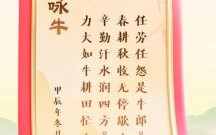 咏牛
任劳任怨是牛郎。
春耕秋收无停歇，
辛勤汗水润四方。
力大如牛耕田忙，
甲辰年冬日